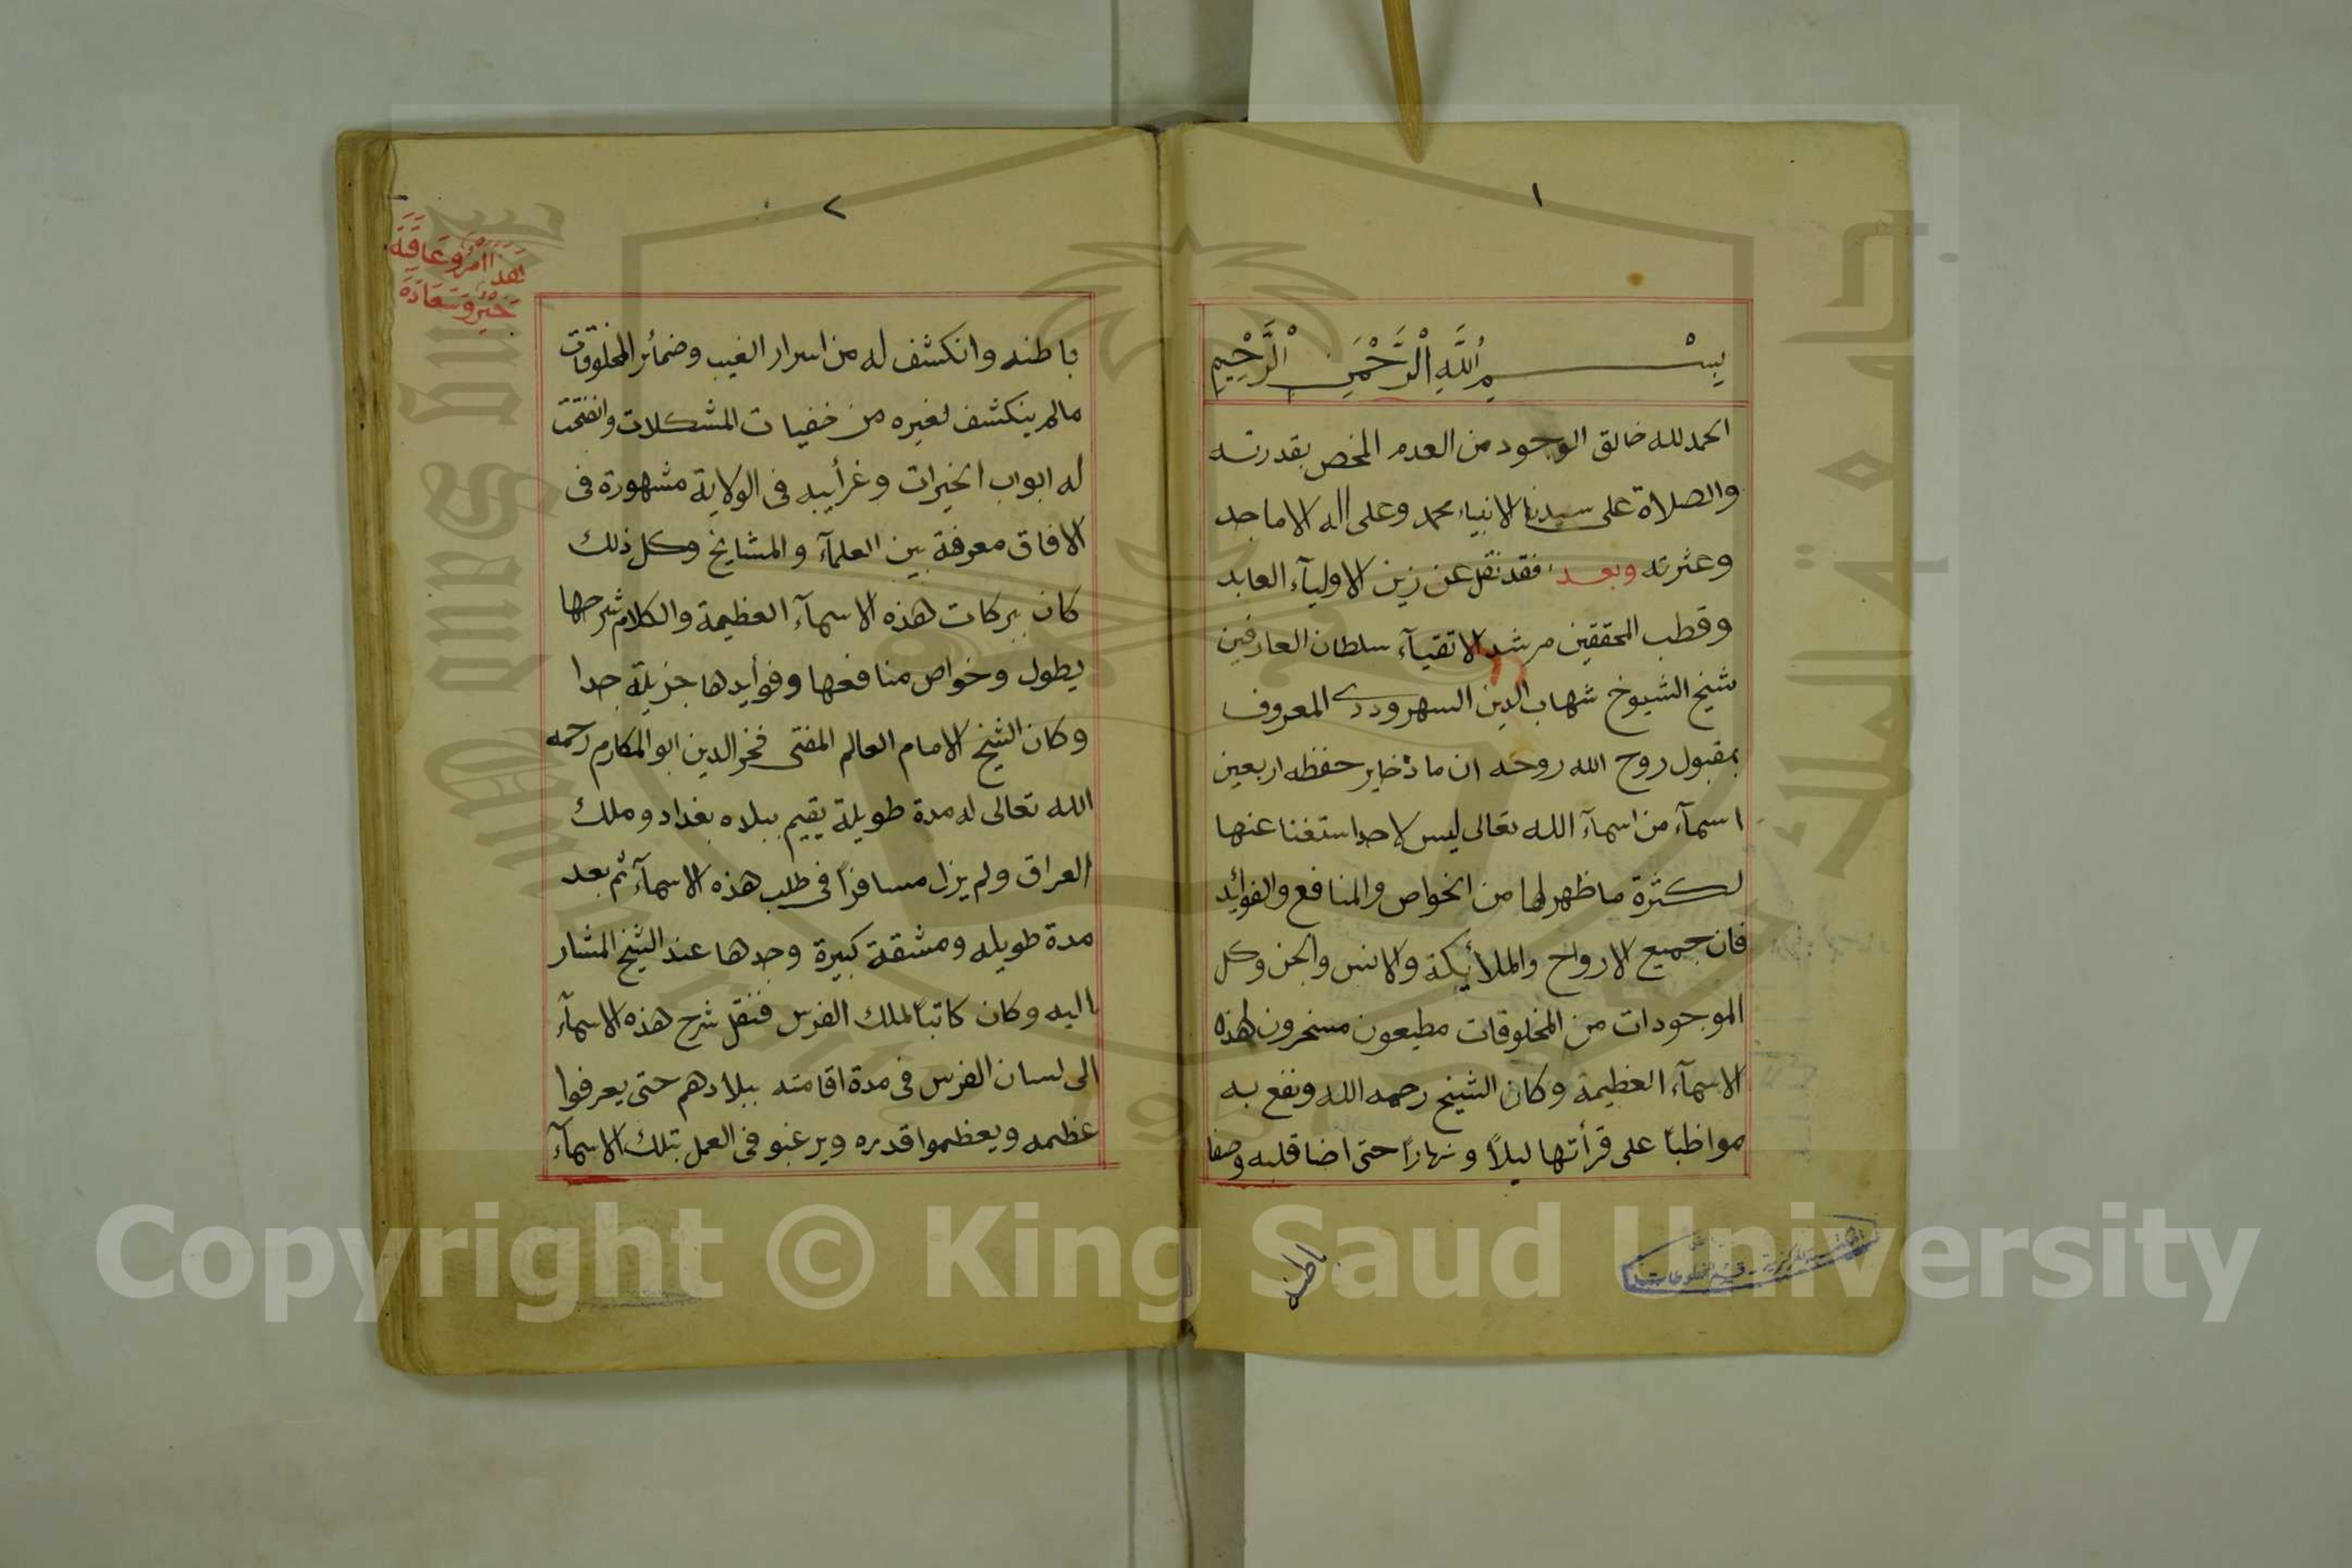 ١
بسم الله الرحمن الرحيم
الحمد لله خالق الوجود من العدم المخص بقدرته
والصلاة على سيدنا الانبياء محمد وعلى اله الاماجد
وعثرته وبعد فقد نقل عن زين الاوليآء العابد
وقطب المحققين مرشد الاتقيآء سلطان العارفين
شيخ الشيوخ شهاب الدين السهروردى المعروف
بمقبول روح الله روحه ان ما ذخاير حفظه اربعين
اسمآء من اسمآء الله تعالى ليس لاحد استغنا عنها
لكثرة ما ظهر لها من الخواص والمنافع والفوائد
فان جميع الارواح والملأيكة والانس والجن وكل
الموجودات من المخلوقات مطيعون مسخرون لهذه
الاسمآء العظيمة وكان الشيخ رحمه الله ونفع به
مواظبًا على قرأتها ليلاً ونهارًا حتى اضا قلبه وصفا
باطنه
٢
هذا امر وعاقة
خير وسعادة
باطنه وانكشف له من اسرار الغيب وضمائر المخلوقات
مالم ينكشف لغيره من خفيات المشكلات وانفتحت
له ابواب الخيرات وغرأيبه فى الولاية مشهورة فى
الافاق معرفة بين العلمآء والمشايخ وكل ذلك
كان ببركات هذه الاسمآء العظيمة والكلام شرحها
يطول وخواص منافعها وفوأيدها جزيلة جدا
وكان الشيخ الامام العالم المفتى فخر الدين ابو المكارم رحمه
الله تعالى له مدة طويلة يقيم ببلاه بغداد وملك
العراق ولم يزل مسافرًا فى طلب هذه الاسمآء ثم بعد
مدة طويله ومشقة كبيرة وجدها عند الشيخ المشار
اليه وكان كاتبًا لملك الفرس فنقل شرح هذه الاسمآء
الى لسان الفرس فى مدة اقامته ببلادهم حتى يعرفوا
عظمه ويعظموا قدره ويرغبو فى العمل بتلك الاسمآء
Copyright © King Saud University